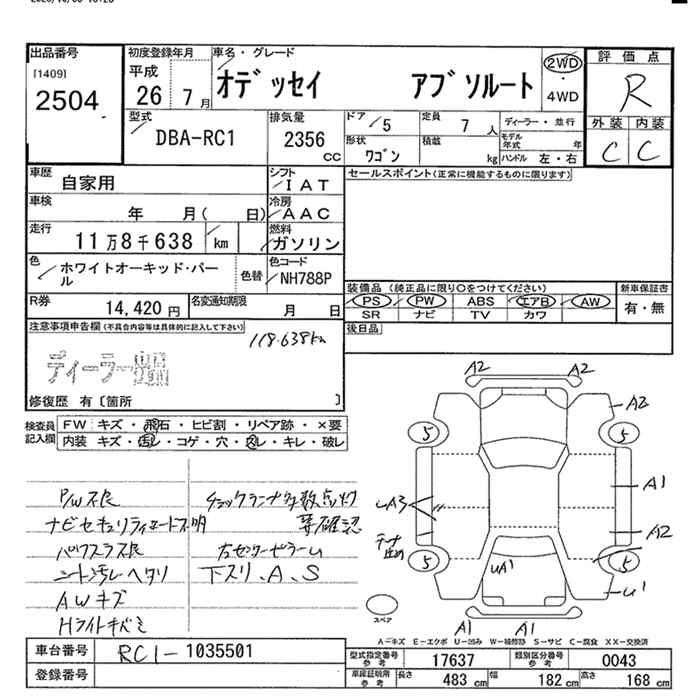 出品番号
[1409]
2504
初度登録年月
平成
26 7月
車名・グレード
オデッセイ アブソルート
2WD
・
4WD
評価点
R
外装 内装
C C
型式
DBA-RC1
排気量
2356
CC
ドア
5
定員
7人
形状
ワゴン
積載
kg
ディーラー・並行
モデル年式 年
ハンドル 左・右
車歴
自家用
シフト
IAT
車検
年 月( 日)
冷房
AAC
走行
11万8千638 km
燃料
ガソリン
色
ホワイトオーキッド・パール
色替
色コード
NH788P
セールスポイント(正常に機能するものに限ります)
装備品(純正品に限り○をつけてください)
PS PW ABS エアB AW
SR ナビ TV カワ
新車保証書
有・無
後日品
R券
14,420円
名変通知期限
月 日
注意事項申告欄(不具合内容等は具体的に記入して下さい)
118.638km
修復歴 有〔箇所 〕
検査員記入欄
FW キズ・飛石・ヒビ割・リペア跡・×要
内装 キズ・汚レ・コゲ・穴・スレ・キレ・破レ
P/W不良
パワスラ不良
シート汚レヘタリ
AWキズ
Hライトキバミ
チェックランプ多数点灯
要確認
右センターピラーU
下スリ、A、S
A2 A2
A2
5 5
A1
UA3
A2
5 5
UA1
U1
A1 A1
スペア
A−キズ E−エクボ U−凹み W−補修跡 S−サビ C−腐食 XX−交換済
車台番号
RC1- 1035501
登録番号
型式指定番号 参考
17637
類別区分番号 参考
0043
車庫証明用 参考
長さ 483 cm
幅 182 cm
高さ 168 cm